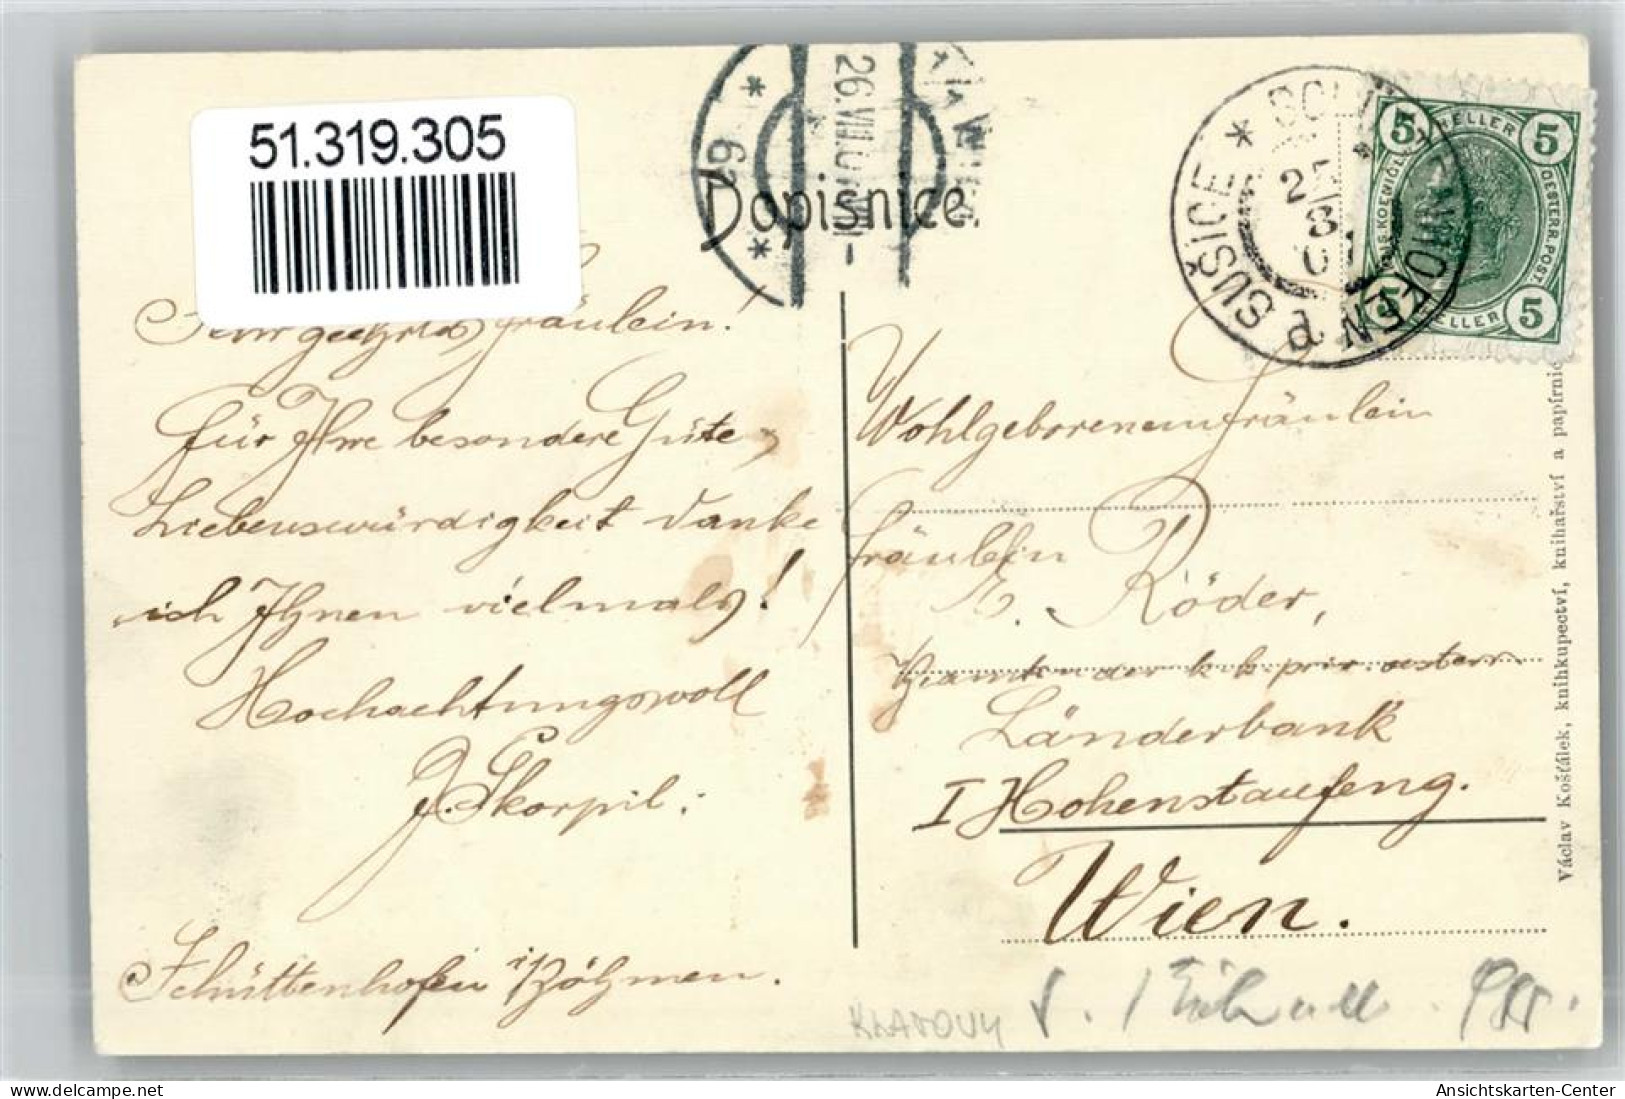 51.319.305
Dopisnice.
62
26.VIII.0
SUŠICE * SCHÜTTENHOFEN P
25
8
5 HELLER 5
OESTERR. POST
5 HELLER 5
Sehr geehrtes Fräulein!
für Ihre besondere Güte,
Liebenswürdigkeit danke
ich Ihnen vielmals!
Hochachtungsvoll
J. Škorpil.
Schüttenhofen i/Böhmen.
Wohlgeborenem Fräulein
Fräulein
Röder,
der k. k. priv. oesterr
Länderbank
I Hohenstaufeng.
Wien.
KLATOVY
Václav Košťálek, knihkupectví, knihařství a papírnic
Ansichtskarten-Center